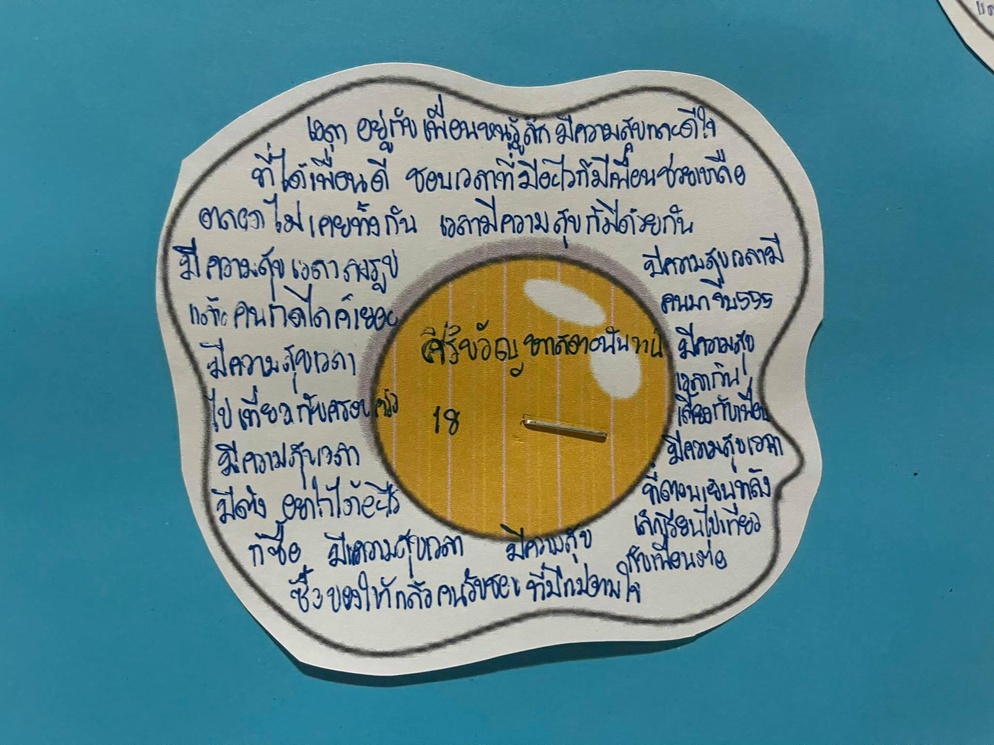 เวลา อยู่กับ เพื่อนหนูรู้สึก มีความสุขและดีใจ
ที่ได้เพื่อนดี ชอบเวลาที่มีอะไรก็มีเพื่อนช่วยเหลือ
ตลอด ไม่ เคยทิ้งกัน เวลามีความสุข ก็มีด้วยกัน
มีความสุข เวลา ลงรูป
แล้ว คนกดไลค์เยอะ
มีความสุขเวลา
ไปเที่ยวกับครอบครัว
มีความสุขเวลา
มีตัง อยากได้อะไร
ก็ซื้อ มีความสุขเวลา มีความสุข
ซื้อของให้ คนรับชอบ
มีความสุขเวลามี
คนมาจีบ555
มีความสุข
เวลากิน
เลี้ยงกับเพื่อน
มีความสุขเวลา
ที่ตอนเย็นหลัง
เลิกเรียนไปเที่ยว
กับเพื่อนต่อ
ศิริขวัญ
18